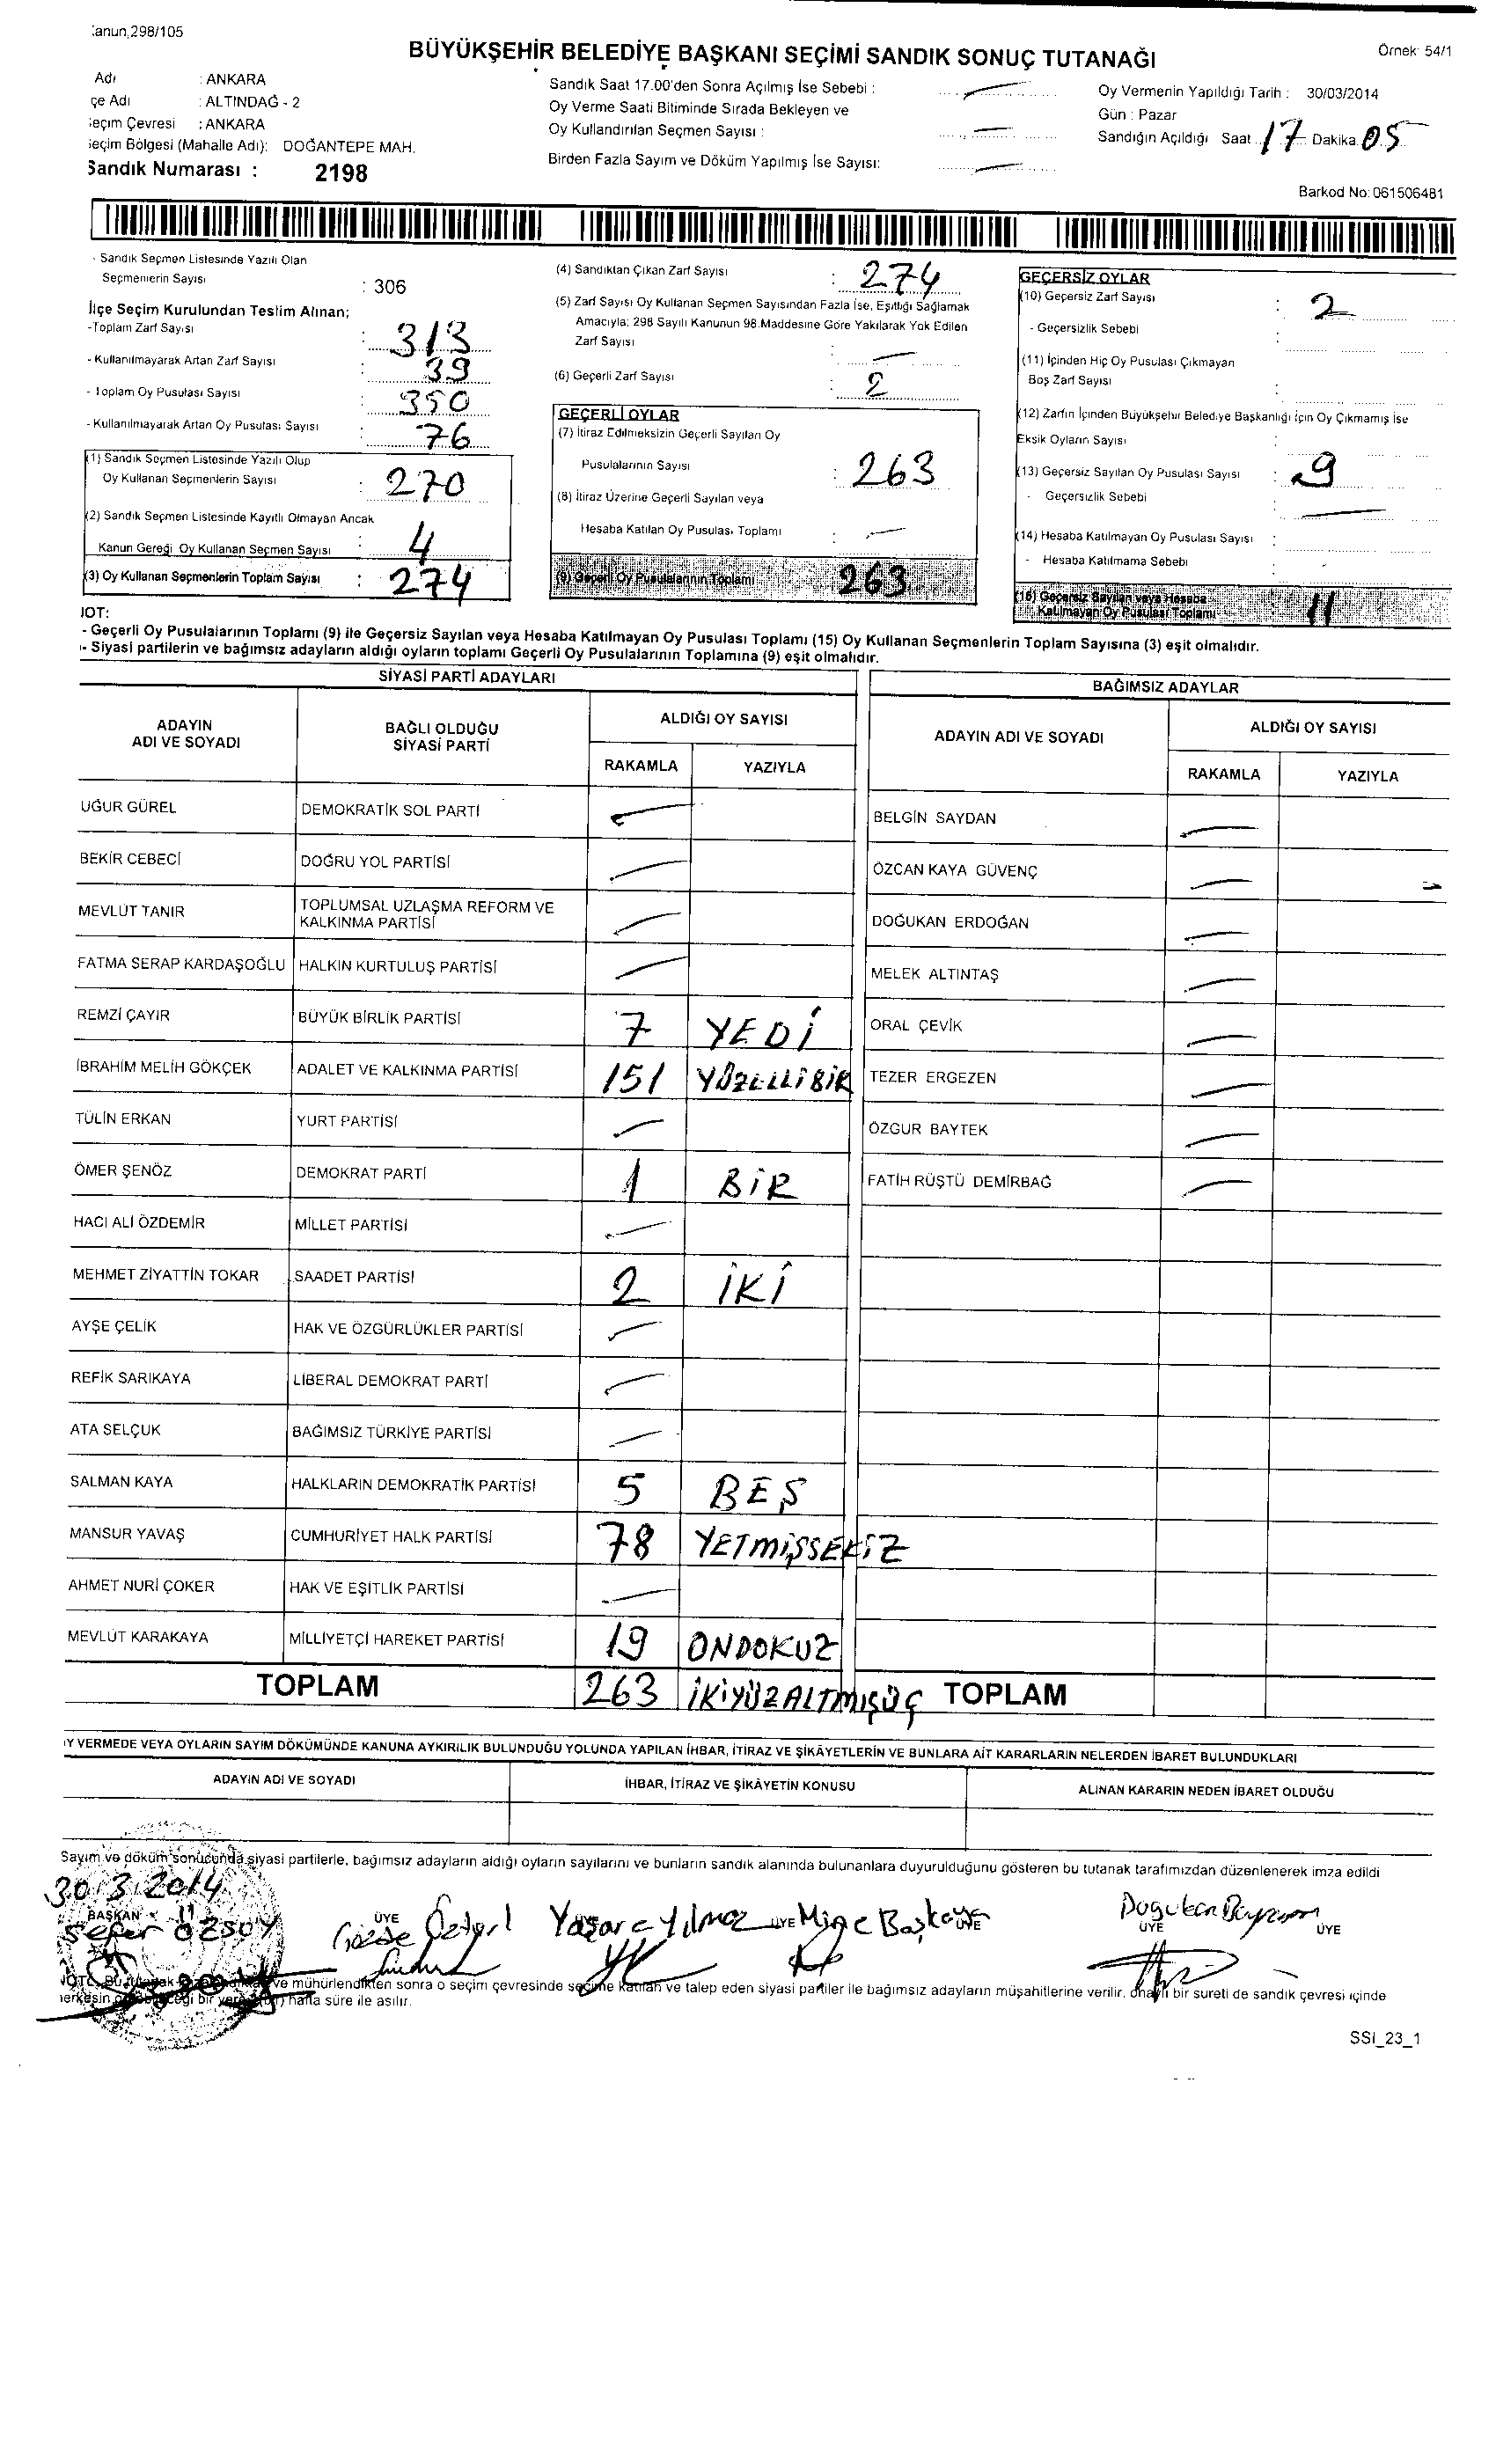 Kanun,298/105
BÜYÜKŞEHİR BELEDİYE BAŞKANI SEÇİMİ SANDIK SONUÇ TUTANAĞI
Örnek: 54/1
Adı : ANKARA
çe Adı : ALTINDAĞ - 2
eçim Çevresi : ANKARA
eçim Bölgesi (Mahalle Adı): DOĞANTEPE MAH.
Sandık Numarası : 2198
Sandık Saat 17.00'den Sonra Açılmış İse Sebebi :
Oy Verme Saati Bitiminde Sırada Bekleyen ve
Oy Kullandırılan Seçmen Sayısı :
Birden Fazla Sayım ve Döküm Yapılmış İse Sayısı:
Oy Vermenin Yapıldığı Tarih : 30/03/2014
Gün : Pazar
Sandığın Açıldığı Saat 17 Dakika 05
Barkod No: 061506481
- Sandık Seçmen Listesinde Yazılı Olan
Seçmenlerin Sayısı : 306
İlçe Seçim Kurulundan Teslim Alınan;
-Toplam Zarf Sayısı : 313
- Kullanılmayarak Artan Zarf Sayısı : 39
- Toplam Oy Pusulası Sayısı : 350
- Kullanılmayarak Artan Oy Pusulası Sayısı : 76
(1) Sandık Seçmen Listesinde Yazılı Olup
Oy Kullanan Seçmenlerin Sayısı : 270
(2) Sandık Seçmen Listesinde Kayıtlı Olmayan Ancak
Kanun Gereği Oy Kullanan Seçmen Sayısı : 4
(3) Oy Kullanan Seçmenlerin Toplam Sayısı : 274
(4) Sandıktan Çıkan Zarf Sayısı : 274
(5) Zarf Sayısı Oy Kullanan Seçmen Sayısından Fazla İse, Eşitliği Sağlamak
Amacıyla; 298 Sayılı Kanunun 98.Maddesine Göre Yakılarak Yok Edilen
Zarf Sayısı :
(6) Geçerli Zarf Sayısı : 2
GEÇERLİ OYLAR
(7) İtiraz Edilmeksizin Geçerli Sayılan Oy
Pusulalarının Sayısı : 263
(8) İtiraz Üzerine Geçerli Sayılan veya
Hesaba Katılan Oy Pusulası Toplamı :
(9) Geçerli Oy Pusulalarının Toplamı 263
GEÇERSİZ OYLAR
(10) Geçersiz Zarf Sayısı : 2
- Geçersizlik Sebebi :
(11) İçinden Hiç Oy Pusulası Çıkmayan
Boş Zarf Sayısı :
(12) Zarfın İçinden Büyükşehir Belediye Başkanlığı İçin Oy Çıkmamış İse
Eksik Oyların Sayısı :
(13) Geçersiz Sayılan Oy Pusulası Sayısı : 9
- Geçersizlik Sebebi :
(14) Hesaba Katılmayan Oy Pusulası Sayısı :
- Hesaba Katılmama Sebebi
(15) Geçersiz Sayılan veya Hesaba
Katılmayan Oy Pusulası Toplamı : 11
NOT:
- Geçerli Oy Pusulalarının Toplamı (9) ile Geçersiz Sayılan veya Hesaba Katılmayan Oy Pusulası Toplamı (15) Oy Kullanan Seçmenlerin Toplam Sayısına (3) eşit olmalıdır.
- Siyasi partilerin ve bağımsız adayların aldığı oyların toplamı Geçerli Oy Pusulalarının Toplamına (9) eşit olmalıdır.
SİYASİ PARTİ ADAYLARI
ADAYIN ADI VE SOYADI BAĞLI OLDUĞU SİYASİ PARTİ ALDIĞI OY SAYISI
RAKAMLA YAZIYLA
UĞUR GÜREL DEMOKRATİK SOL PARTİ
BEKİR CEBECİ DOĞRU YOL PARTİSİ
MEVLÜT TANIR TOPLUMSAL UZLAŞMA REFORM VE KALKINMA PARTİSİ
FATMA SERAP KARDAŞOĞLU HALKIN KURTULUŞ PARTİSİ
REMZİ ÇAYIR BÜYÜK BİRLİK PARTİSİ 7 YEDİ
İBRAHİM MELİH GÖKÇEK ADALET VE KALKINMA PARTİSİ 151 YÜZELLİBİR
TÜLİN ERKAN YURT PARTİSİ
ÖMER ŞENÖZ DEMOKRAT PARTİ 1 BİR
HACI ALİ ÖZDEMİR MİLLET PARTİSİ
MEHMET ZİYATTİN TOKAR SAADET PARTİSİ 2 İKİ
AYŞE ÇELİK HAK VE ÖZGÜRLÜKLER PARTİSİ
REFİK SARIKAYA LİBERAL DEMOKRAT PARTİ
ATA SELÇUK BAĞIMSIZ TÜRKİYE PARTİSİ
SALMAN KAYA HALKLARIN DEMOKRATİK PARTİSİ 5 BEŞ
MANSUR YAVAŞ CUMHURİYET HALK PARTİSİ 78 YETMİŞSEKİZ
AHMET NURİ ÇOKER HAK VE EŞİTLİK PARTİSİ
MEVLÜT KARAKAYA MİLLİYETÇİ HAREKET PARTİSİ 19 ONDOKUZ
TOPLAM 263 İKİYÜZALTMIŞÜÇ
BAĞIMSIZ ADAYLAR
ADAYIN ADI VE SOYADI ALDIĞI OY SAYISI
RAKAMLA YAZIYLA
BELGİN SAYDAN
ÖZCAN KAYA GÜVENÇ
DOĞUKAN ERDOĞAN
MELEK ALTINTAŞ
ORAL ÇEVİK
TEZER ERGEZEN
ÖZGUR BAYTEK
FATİH RÜŞTÜ DEMİRBAĞ
TOPLAM
Y VERMEDE VEYA OYLARIN SAYIM DÖKÜMÜNDE KANUNA AYKIRILIK BULUNDUĞU YOLUNDA YAPILAN İHBAR, İTİRAZ VE ŞİKÂYETLERİN VE BUNLARA AİT KARARLARIN NELERDEN İBARET BULUNDUKLARI
ADAYIN ADI VE SOYADI İHBAR, İTİRAZ VE ŞİKÂYETİN KONUSU ALINAN KARARIN NEDEN İBARET OLDUĞU
Sayım ve döküm sonucunda siyasi partilerle, bağımsız adayların aldığı oyların sayılarını ve bunların sandık alanında bulunanlara duyurulduğunu gösteren bu tutanak tarafımızdan düzenlenerek imza edildi
30/3/2014
BAŞKAN ÜYE ÜYE ÜYE ÜYE ÜYE
Sefer ÖZSOY Gözde Yaşar Yılmaz Doğukan Bayram
ve mühürlendikten sonra o seçim çevresinde seçime katılan ve talep eden siyasi partiler ile bağımsız adayların müşahitlerine verilir, onaylı bir sureti de sandık çevresi içinde
herkesin bir hafta süre ile asılır.
SSI_23_1